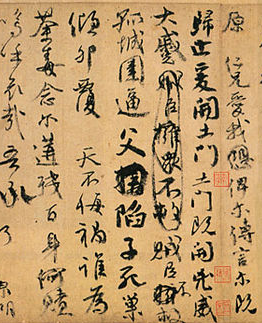 原仁兄愛我俾爾傳言爾既
歸止爰開土門土門既開凶威
大蹙賊臣擁衆不救賊臣不救
孤城圍逼父陷子死巢
傾卵覆天不悔禍誰為
荼毒念爾遘殘百身何贖
嗚呼哀哉吾承